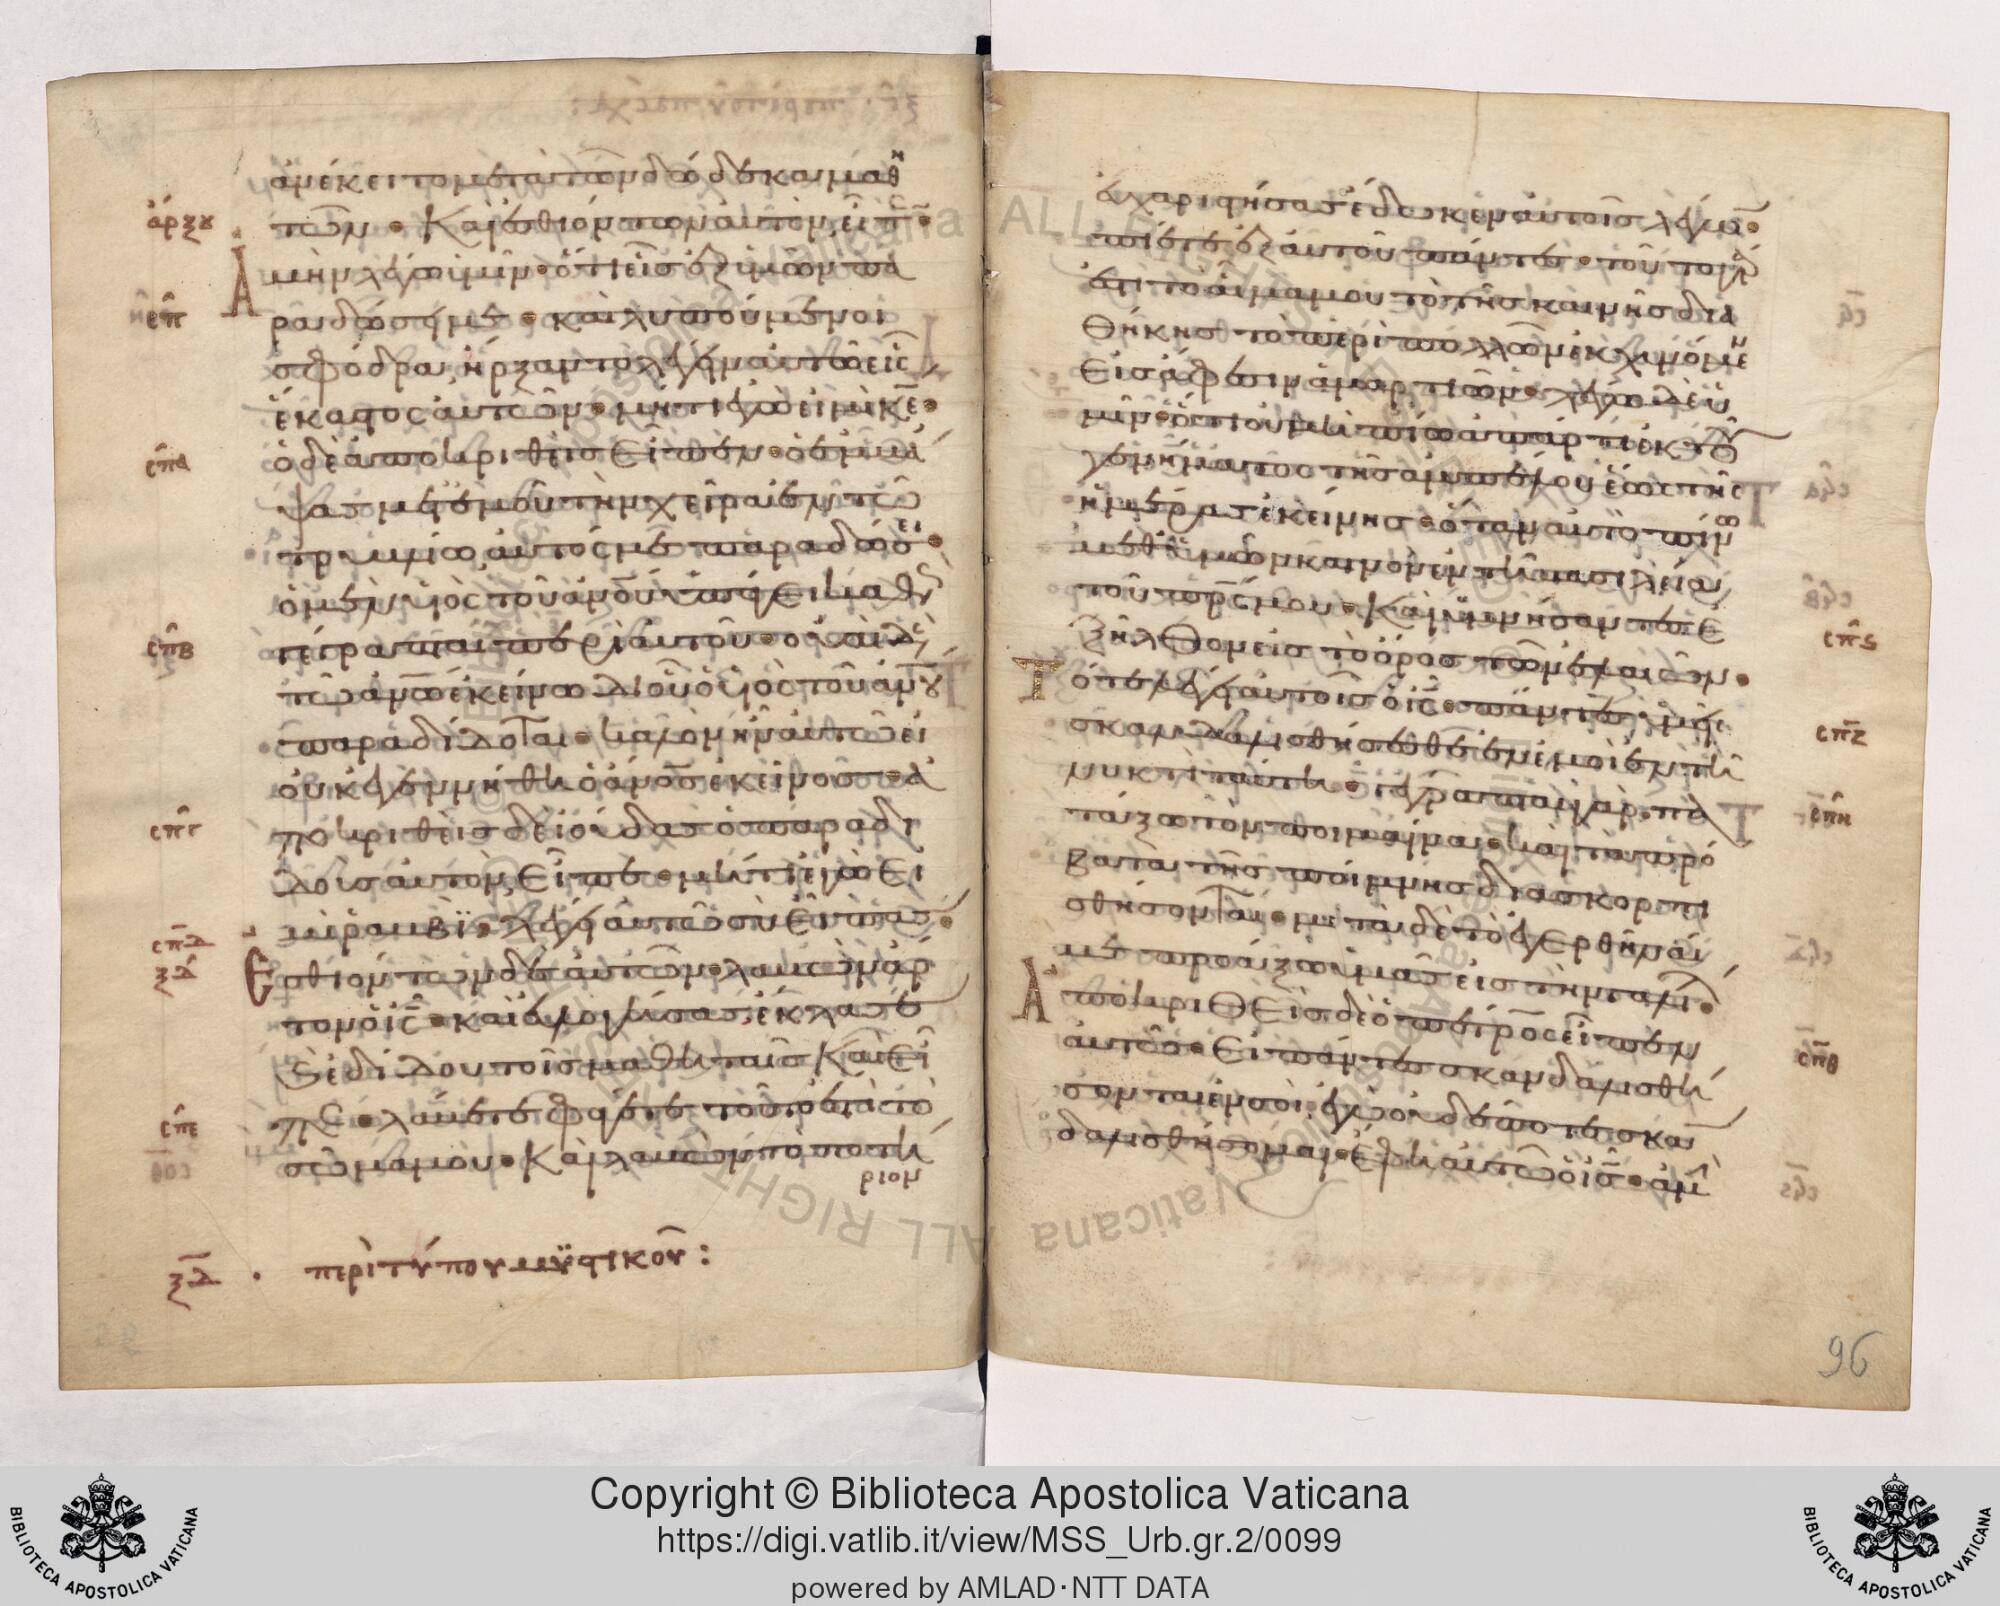 ἀνέκειτο μετὰ τῶν δώδεκα μαθη
ἀρξου
τῶν. Καὶ ἐσθιόντων αὐτῶν, εἶπεν.
Ἀμὴν λέγω ὑμῖν. ὅτι εἷς ἐξ ὑμῶν πα
σπ
ραδώσει με. καὶ λυπούμενοι
σφόδρα, ἤρξαντο λέγειν αὐτῶ εἷς
ἕκαστος αὐτῶν. μήτι ἐγώ εἰμι κε.
σπα
ὁ δὲ ἀποκριθεὶς εἶπεν. ὁ ἐμβά
ψας μετ' ἐμοῦ τὴν χεῖρα ἐν τῶ
τρυβλίω, αὐτός με παραδώσει.
ὁ μὲν υἱὸς τοῦ ανου ὑπάγει καθὼς
σπβ
γέγραπται περὶ αὐτοῦ. οὐαὶ δὲ
τῶ ανω ἐκείνω δι' οὗ ὁ υἱὸς τοῦ ανου
παραδίδοται. καλὸν ἦν αὐτῶ εἰ
οὐκ ἐγεννήθη ὁ ανος ἐκεῖνος. ἀ
σπγ
ποκριθεὶς δὲ ἰούδας ὁ παραδι
δοὺς αὐτὸν, εἶπε. μήτι ἐγώ εἰ
μι ῥαββί; λέγει αὐτῶ σὺ εἶπας.
σπδ
ξδ
Ἐσθιόντων δὲ αὐτῶν. λαβὼν ἄρ
τον ὁ ις. καὶ εὐλογήσας ἔκλασε
καὶ ἐδίδου τοῖς μαθηταῖς καὶ εἶ
πε. λάβετε φάγετε τοῦτό ἐστι τὸ
σπε
σῶμά μου. Καὶ λαβὼν τὸ ποτή
ριον
ξδ . περὶ τύπου μυστικοῦ :
εὐχαριστήσας ἔδωκεν αὐτοῖς λέγων.
πίετε ἐξ αὐτοῦ πάντες. τοῦτο γάρ
ἐστι τὸ αἷμά μου τὸ τῆς καινῆς δια
θήκης τὸ περὶ πολλῶν ἐκχυνόμενον
εἰς ἄφεσιν ἁμαρτιῶν. λέγω δὲ ὑ
μῖν. ὅτι οὐ μὴ πίω ἀπάρτι ἐκ τοῦ
γενήματος τῆς ἀμπέλου ἕως τῆς
ἡμέρας ἐκείνης. ὅταν αὐτὸ πίνω
μεθ' ὑμῶν καινὸν ἐν τῆ βασιλεία
τοῦ πρς μου. Καὶ ὑμνήσαντες ἐ
σπς
ξῆλθον εἰς τὸ ὄρος τῶν ἐλαιῶν.
Τότε λέγει αὐτοῖς ὁ ις. πάντες ὑμεῖς
σπζ
σκανδαλισθήσεσθε ἐν ἐμοὶ ἐν τῆ
νυκτὶ ταύτη. γέγραπται γάρ. πα
σπη
τάξω τὸν ποιμένα. καὶ τὰ πρό
βατα τῆς ποίμνης διασκορπι
σθήσονται. μετὰ δὲ τὸ ἐγερθῆναί
με προάξω ὑμᾶς εἰς τὴν γαλιλ.
Ἀποκριθεὶς δὲ ὁ πέτρος εἶπεν
σπθ
αὐτῶ. Εἰ πάντες σκανδαλισθή
σονται ἐν σοί, ἐγὼ οὐδέποτε σκαν
δαλισθήσομαι. ἔφη αὐτῶ ὁ ις. ἀμὴν
96
Copyright © Biblioteca Apostolica Vaticana
https://digi.vatlib.it/view/MSS_Urb.gr.2/0099
powered by AMLAD·NTT DATA
BIBLIOTECA APOSTOLICA VATICANA
BIBLIOTECA APOSTOLICA VATICANA